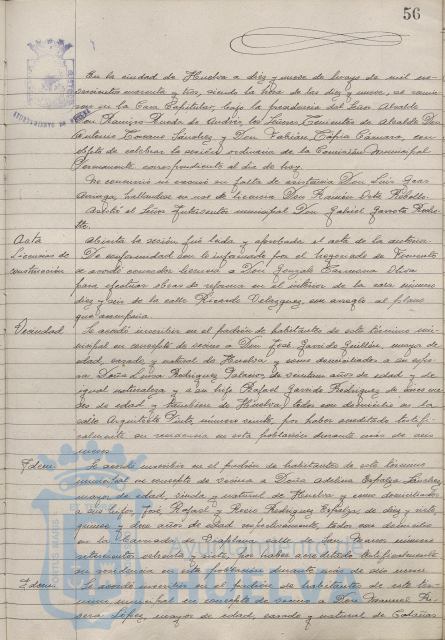 56
En la ciudad de Huelva a diez y nueve de Mayo de mil no-
vecientos cuarenta y tres, siendo la hora de las diez y nueve, se reunie-
ron en la Casa Capitular, bajo la presidencia del Señor Alcalde
Don Ramiro Rueda de Andrés, los Señores Tenientes de Alcalde Don
Antonio Toscano Sánchez y Don Fabián Tapia Cámara, con
objeto de celebrar la sesión ordinaria de la Comisión Municipal
Permanente correspondiente al día de hoy.
No concurrió ni excusó su falta de asistencia Don Luis
hallándose en uso de licencia Don Ramón
Asistió el Señor Interventor municipal Don Gabriel Gavota
Acta
Abierta la sesión fué leída y aprobada el acta de la anterior.
Licencias de
De conformidad con lo informado por el Negociado de Fomento
construcción
se acordó conceder licencia a Don Gonzalo Carmona Oliva
para efectuar obras de reforma en el interior de la casa número
diez y seis de la calle Ricardo Velázquez, con arreglo al plano
que acompaña.
Vecindad
Se acordó inscribir en el padrón de habitantes de este término mu-
nicipal en concepto de vecino a Don José Garrido Guillén, mayor de
edad, casado y natural de Huelva y como domiciliados a su espo-
sa Doña Luisa Rodríguez Palacios, de edad y de
igual naturaleza y a su hijo Rafael Garrido Rodríguez de once me-
ses de edad y también de Huelva, todos con domicilio en la
calle Arquitecto Pinto, número veinte, por haber acreditado testifi-
calmente su residencia en esta población durante más de seis
meses.
Idem.
Se acordó inscribir en el padrón de habitantes de este término
municipal en concepto de vecina a Doña Adelina Espalza Sánchez,
mayor de edad, viuda y natural de Huelva y como domiciliados
a sus hijos José, Rafael y Rocío Rodríguez Espalza de diez y siete,
quince y doce años de edad respectivamente, todos con domicilio
en la Barriada de calle de San Marcos número
setecientos ochenta y siete, por haber acreditado testificalmente
su residencia en esta población durante más de seis meses.
Idem.
Se acordó inscribir en el padrón de habitantes de este tér-
mino municipal en concepto de vecino a Don Manuel
López, mayor de edad, casado y natural de Calañas